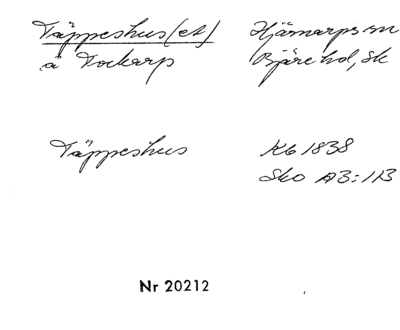 Täppeshus(et) Hjärnarps sn
å Tockarp Bjäre hd, Sk
Täppeshus Kb 1838
Sko AB:11B
Nr 20212